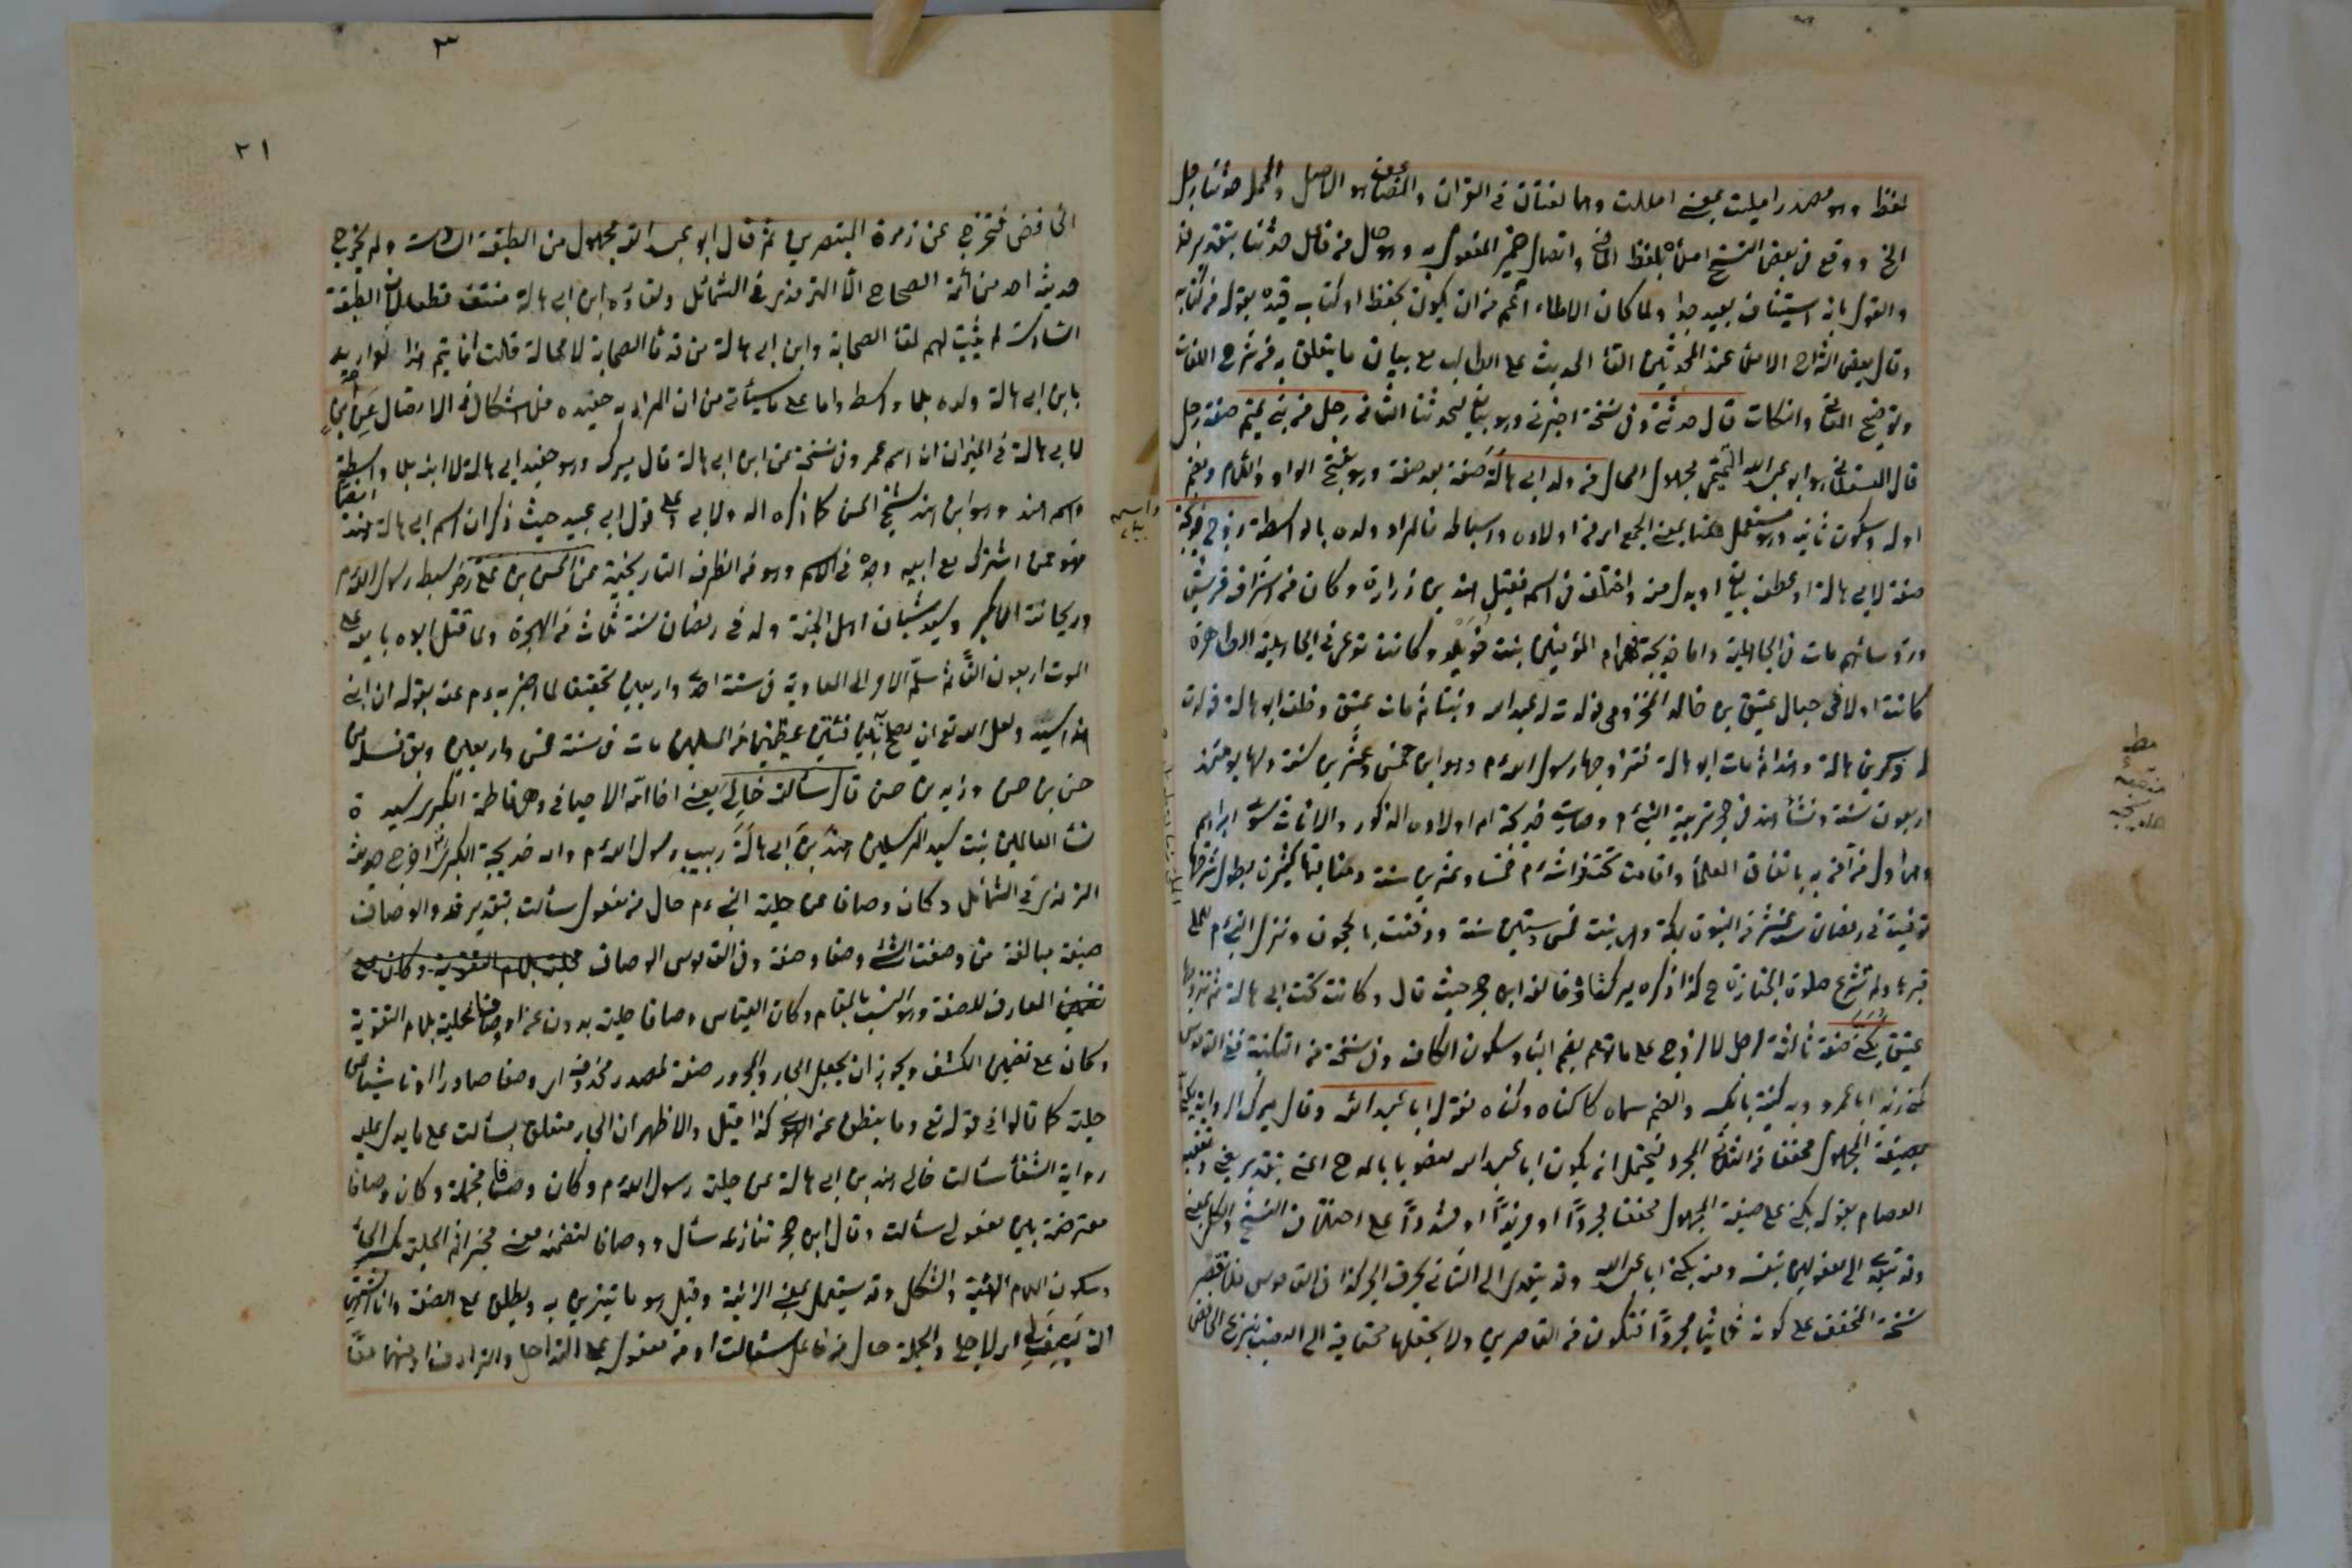 لفظ وهو مصدر امليت بمعنى امللت وهما لغتان في القرآن والمضاعف هو الاصل والجملة حدثنا رجل
الخ ووقع في بعض النسخ املاه بلفظ الماضي واتصال ضمير المفعول به وهو حال من فاعل حدثنا بتقدير قد
والقول بانه استيناف بعيد جدا ولما كان الاملاء اعم من ان يكون بحفظ او كتاب قيده بقوله من كتابه
وقال بعض الشراح الاملاء عند المحدثين القاء الحديث على الطالب مع بيان ما يتعلق به من شرح اللغات
وتوضيح المعاني والنكات قال حدثني وفي نسخة اخبرني وهو بيان لحدثنا الثاني رجل من بني تميم صفة رجل
قال العسقلاني هو ابو عبد الله التميمي مجهول الحال من ولد ابي هالة صفة بعد صفة وهو بفتح الواو واللام وبضم
اوله وسكون ثانيه وهو مستعمل هنا بمعنى الجمع اي من اولاده واسباطه فالمراد ولده بالواسطة زوج خديجة
صفة لابي هالة او عطف بيان او بدل منه واختلف في اسمه فقيل هند بن زرارة وكان من اشراف قريش
ورؤسائهم مات في الجاهلية واما خديجة فهي ام المؤمنين بنت خويلد وكانت تدعى في الجاهلية الطاهرة
كانت اولا في حبال عتيق بن خالد المخزومي فولدت له عبد الله وبنتا ثم مات عتيق وخلف ابو هالة فولدت
له ذكرين هالة وهندا ثم مات ابو هالة فتزوجها رسول الله م وهو ابن خمس وعشرين سنة ولها يومئذ
اربعون سنة ونشأ هند في حجر تربية النبي م وصارت خديجة ام اولاده الذكور والاناث سوى ابراهيم
وهي اول من آمن به باتفاق العلماء واقامت تحت فراشه م خمسا وعشرين سنة ومناقبها كثيرة يطول شرحها
توفيت في رمضان سنة عشر من النبوة بمكة وهي بنت خمس وستين سنة ودفنت بالحجون ونزل النبي م على
قبرها ولم تشرع صلوة الجنازة ح كذا ذكره ميرك شاه وخالفه ابن حجر حيث قال وكانت تحت ابي هالة ثم تزوجها
عتيق يكنى صفة ثالثة لرجل لا لزوج على ما توهم بضم الياء وسكون الكاف وفي نسخة من التكنية ففي القاموس
كنى زيد ابا عمرو وبه كنية بالكسر والضم سماه كاكناه وكناه فقوله ابا عبد الله وقال ميرك الرواية يكنى
بصيغة المجهول مخففا من الثلاثي المجرد فيحتمل ان يكون ابا عبد الله منصوبا بالمدح اعني بتقدير يعني وتعقبه
العصام بقوله يكنى على صيغة المجهول مخففا مجردا او مزيدا او مشددا على اختلاف النسخ والكل بمعنى
وقد يتعدى الى مفعولين بنفسه ومنه يكنى ابا عبد الله وقد يتعدى الى الثاني بحرف الجر كذا في القاموس فلا تقصر
نسخة المخفف على كونه ثلاثيا مجردا فتكون من القاصرين ولا تجعلها محتاجة الى النصب بنزع الخافض
واسمه
مط
منقبة
خديجة
٣
٢١
الخافض فتخرج عن زمرة المتبصرين ثم قال ابو عبد الله مجهول من الطبقة السادسة ولم يخرج
حديثه احد من ائمة الصحاح الا الترمذي في الشمائل ولقاؤه ابن ابي هالة منتف قطعا لان الطبقة
السادسة لم يثبت لهم لقاء الصحابة وابن ابي هالة من قدماء الصحابة لا محالة قلت انما يتم هذا لو اريد
بابن ابي هالة ولده بلا واسطة واما على ما سيأتي من ان المراد به حفيده فلا اشكال في الاتصال عن ابن
لابي هالة في الميزان ان اسمه عمر وفي نسخة عن ابن ابي هالة قال ميرك وهو حفيد ابي هالة لا ابنه بلا واسطة
واسمه هند وهو ابن هند شيخ الحسن كما ذكره الدولابي وعلى قول ابي عبيد حيث ذكر ان اسم ابي هالة هند ايضا
فهو ممن اشترك مع ابيه وجده في الاسم وهو من الظرف التاريخية عن الحسن بن علي رض سبط رسول الله م
وريحانته الاكبر وسيد شبان اهل الجنة ولد في رمضان سنة ثلاث من الهجرة ولما قتل ابوه بايعه على
الموت اربعون الفا ثم سلم الامر الى المعاوية في سنة احدى واربعين تحقيقا لما اخبر به م عنه بقوله ان ابني
هذا سيد ولعل الله تع ان يصلح به بين فئتين عظيمتين من المسلمين مات في سنة خمس واربعين وبقي نسله من
حسن بن حسن وزيد بن حسن قال سألت خالي يعني اخا امه الاخيافي وهي فاطمة الكبرى سيدة
نساء العالمين بنت سيد المرسلين هند بن ابي هالة ربيب رسول الله م وامه خديجة الكبرى اخرج حديثه
الترمذي في الشمائل وكان وصافا عن حلية النبي م حال من مفعول سألت بتقدير قد والوصاف
صيغة مبالغة من وصفت الشيء وصفا وصفة وفي القاموس الوصاف
العارف للصفة وهو انسب بالمقام وكان القياس وصافا حليته بدون عن او وصافا لحليته بلام التقوية
وكأن على تضمين الكشف ويجوز ان يجعل الجار والمجرور صفة لمصدر محذوف اي وصفا صادرا او ناشيا عن
حليته كما قالوا في قوله تع وما ينطق عن الهوى كذا قيل والاظهر ان الجار متعلق بسألت على ما يدل عليه
رواية الشفاء سألت خالي هند بن ابي هالة عن حلية رسول الله م وكان وصافا فجملة وكان وصافا
معترضة بين مفعولي سألت وقال ابن حجر تنازعه سأل ووصافا لتضمنه معنى مخبرا ثم الحلية بكسر الحاء
وسكون اللام الهيئة والشكل وقد يستعمل بمعنى الزينة وقيل هو ما يتزين به ويطلق على الصفة وانا اشتهي
ان يصف لي اي لاجلي والجملة حال من فاعل سألت او من مفعوله على التداخل والترادف او منهما معا